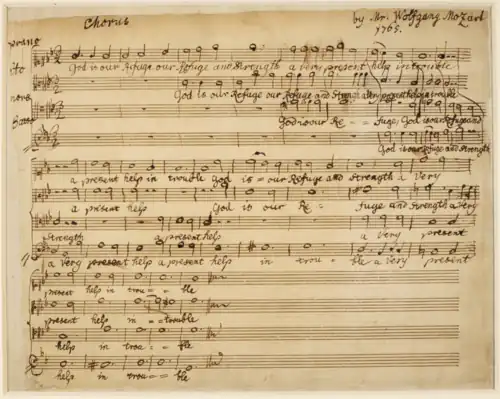 Chorus
by Mr. Wolfgang Mozart
1765.
prano
God is our Refuge our Refuge and Strength a very present help in trouble
lto
God is our Refuge our Refuge and Strength a very present help in trouble
enore
God is our Re - - fuge, God is our Refuge and
Basso
God is our Refuge and Strength
a present help in trouble God is - our Refuge and Strength a very
a present help God is our Re - fuge and Strength a very
Strength a present help a very present
a very present help a present help in trou - - ble a very present
present help in trou - - ble
present help in - - trouble
help in trou - - ble
help in trou - - ble